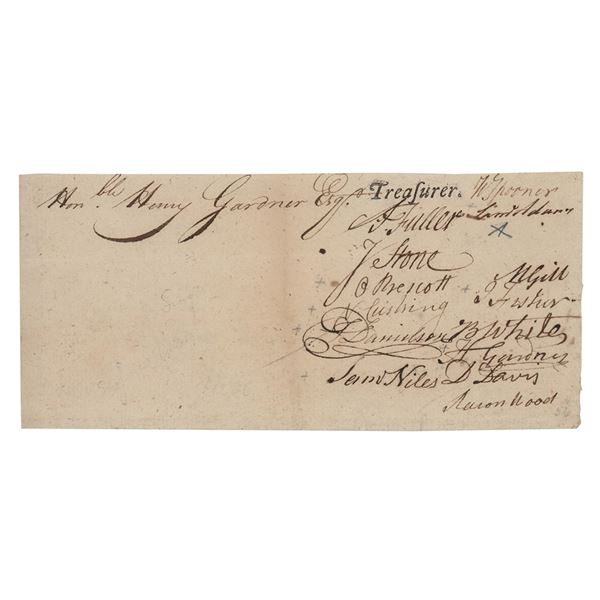 Honble Henry Gardner Esqr Treaſurer.
W Spooner
A Fuller
Saml Adams
J Stone
O Prescott
M Gill
J Fisher
Cushing
T Danielson
B White
H Gardner
Sam Niles
D Davis
Aaron Wood